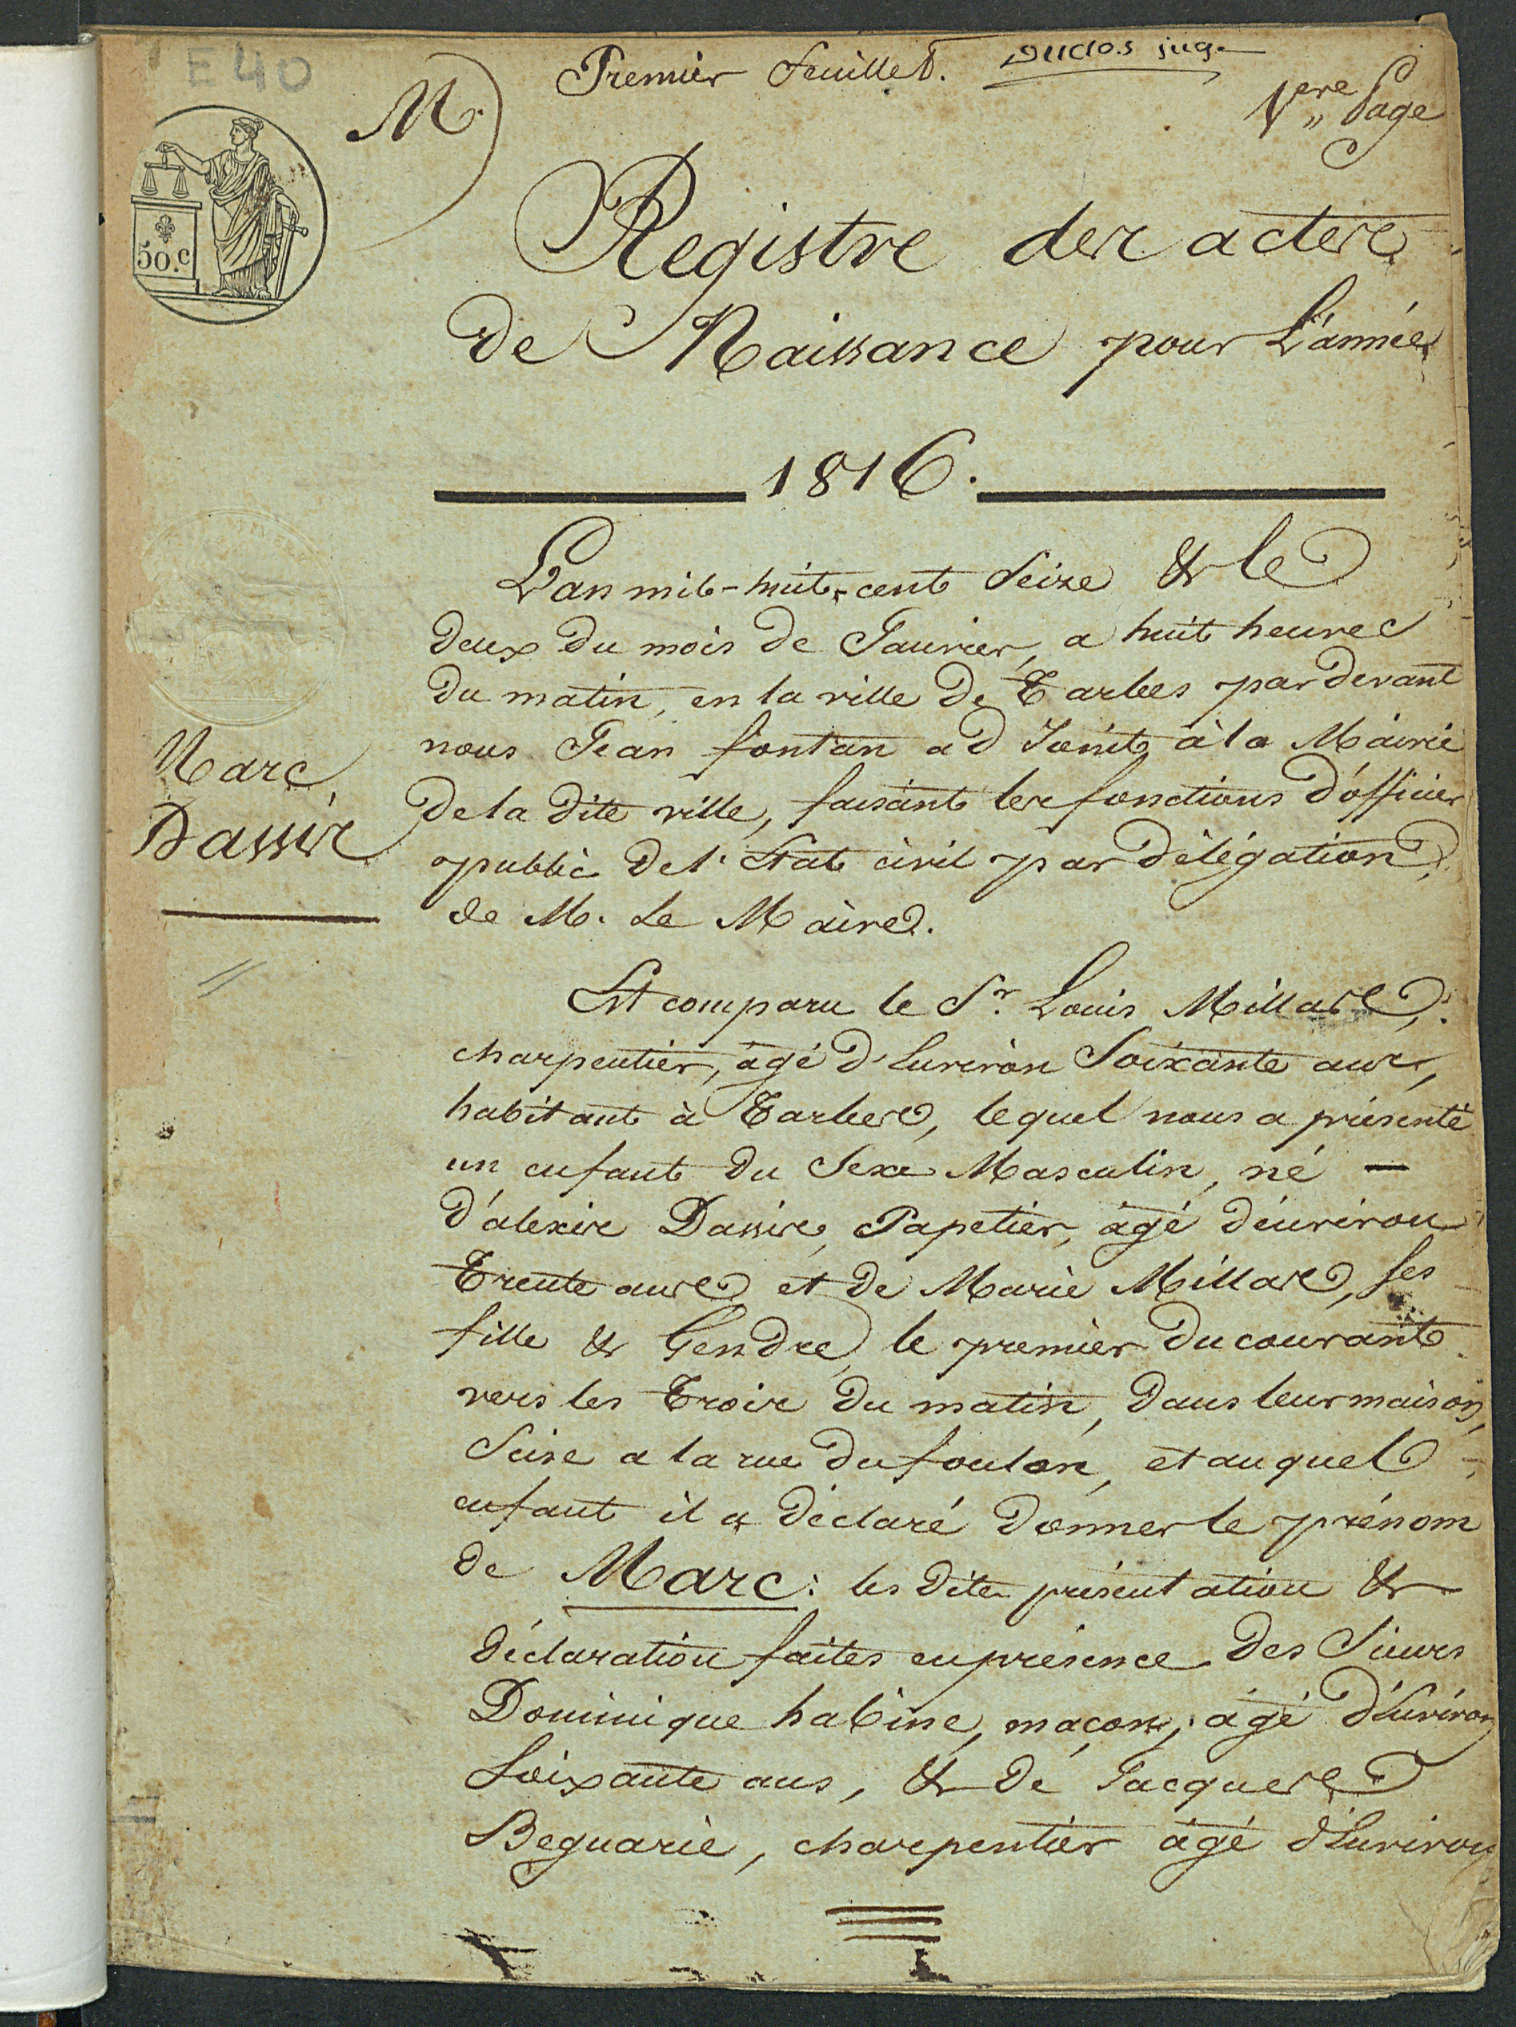 E 40
M.
Premier feuillet. Duclos jug.
1ere Page
50.c
Registre des actes
de Naissance pour L'année
1816.
L'an mil-huit-cent Seize & le
deux du mois de Janvier, a huit heures
du matin, en la ville de Tarbes par devant
nous Jean fontan adjoint à la Mairie
de la dite ville, faisant les fonctions d'officier
public de l'Etat civil par délégation
de M. Le Maire.
Marc
Dassies
Est comparu le Sr. Louis Millas,
charpentier, âgé d'Environ Soixante ans,
habitant à Tarbes, lequel nous a présenté
un enfant du Sexe Masculin, né —
d'alexis Dassies, Papetier, âgé d'environ
Trente ans et de Marie Millas, ses
fille & Gendre, le premier du courant
vers les Trois du matin, dans leur maison,
Seise a la rue du foulon, et auquel
enfant il a déclaré donner le prénom
de Marc: les dites présentation &
déclaration faites en présence des Sieurs
Dominique habine, maçon, âgé d'Environ
Soixante ans, & de Jacques
Beguarie, charpentier âgé d'Environ